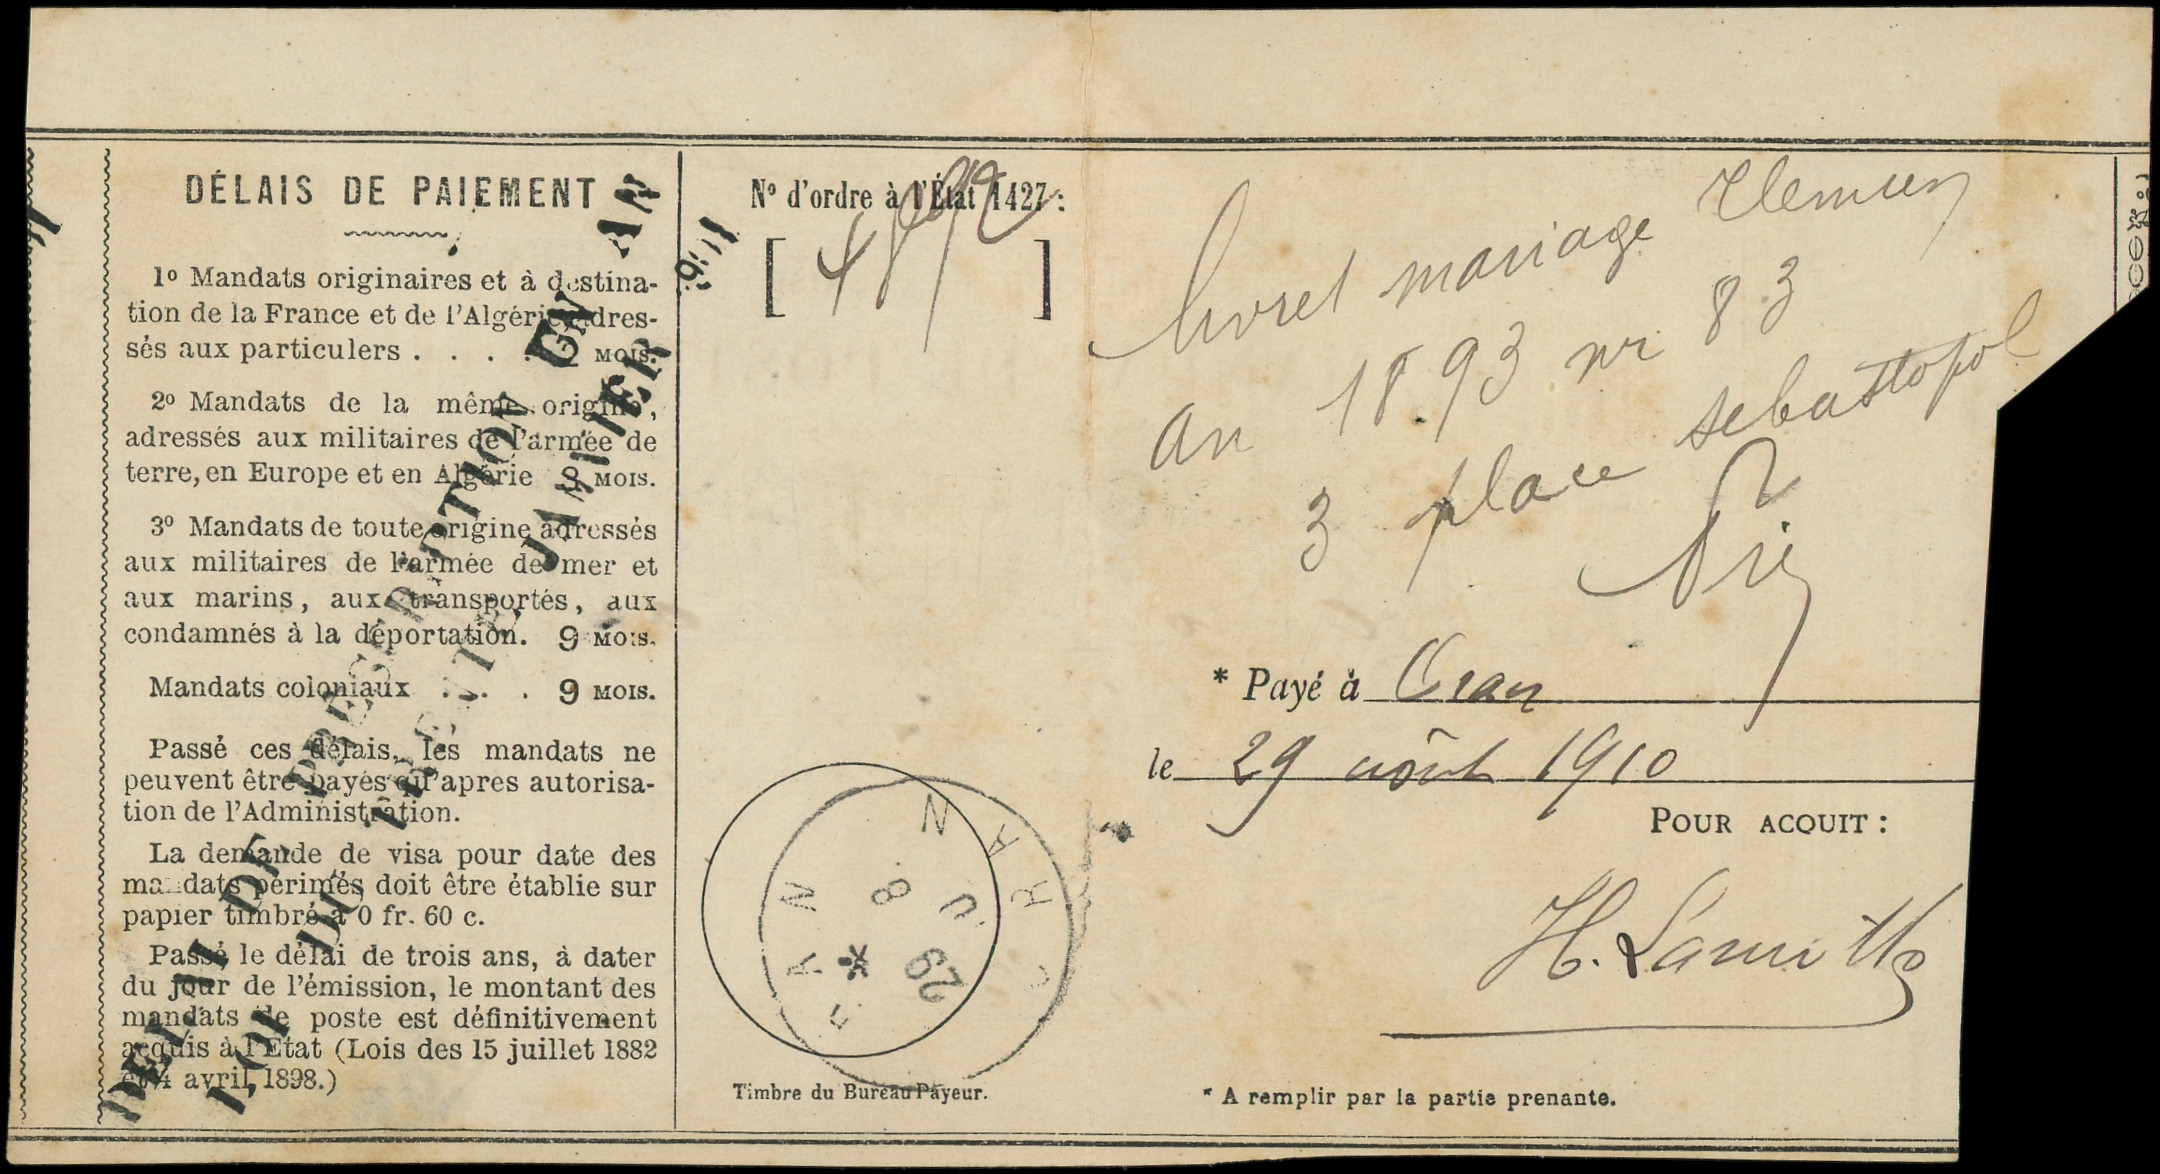 DÉLAIS DE PAIEMENT
1º Mandats originaires et à destina-
tion de la France et de l'Algérie adres-
sés aux particulers . . . . 2 MOIS.
2º Mandats de la même origine,
adressés aux militaires de l'armée de
terre, en Europe et en Algérie 3 MOIS.
3º Mandats de toute origine adressés
aux militaires de l'armée de mer et
aux marins, aux transportés, aux
condamnés à la déportation. 9 MOIS.
Mandats coloniaux . . . . 9 MOIS.
Passé ces délais, les mandats ne
peuvent être payés qu'apres autorisa-
tion de l'Administration.
La demande de visa pour date des
mandats périmés doit être établie sur
papier timbré à 0 fr. 60 c.
Passé le délai de trois ans, à dater
du jour de l'émission, le montant des
mandats de poste est définitivement
acquis à l'Etat (Lois des 15 juillet 1882
et 4 avril 1898.)
DELAI DE PRESCRIPTION UN AN
LOI DU TRENTE JANVIER
Nº d'ordre à l'État 1427 :
[ ]
livret mariage Tlemcen
an 1893 nr 83
3 place sebastopol
* Payé à Oran
le 29 août 1910
POUR ACQUIT :
ORAN
ORAN
29
8
Timbre du Bureau Payeur.
* A remplir par la partie prenante.